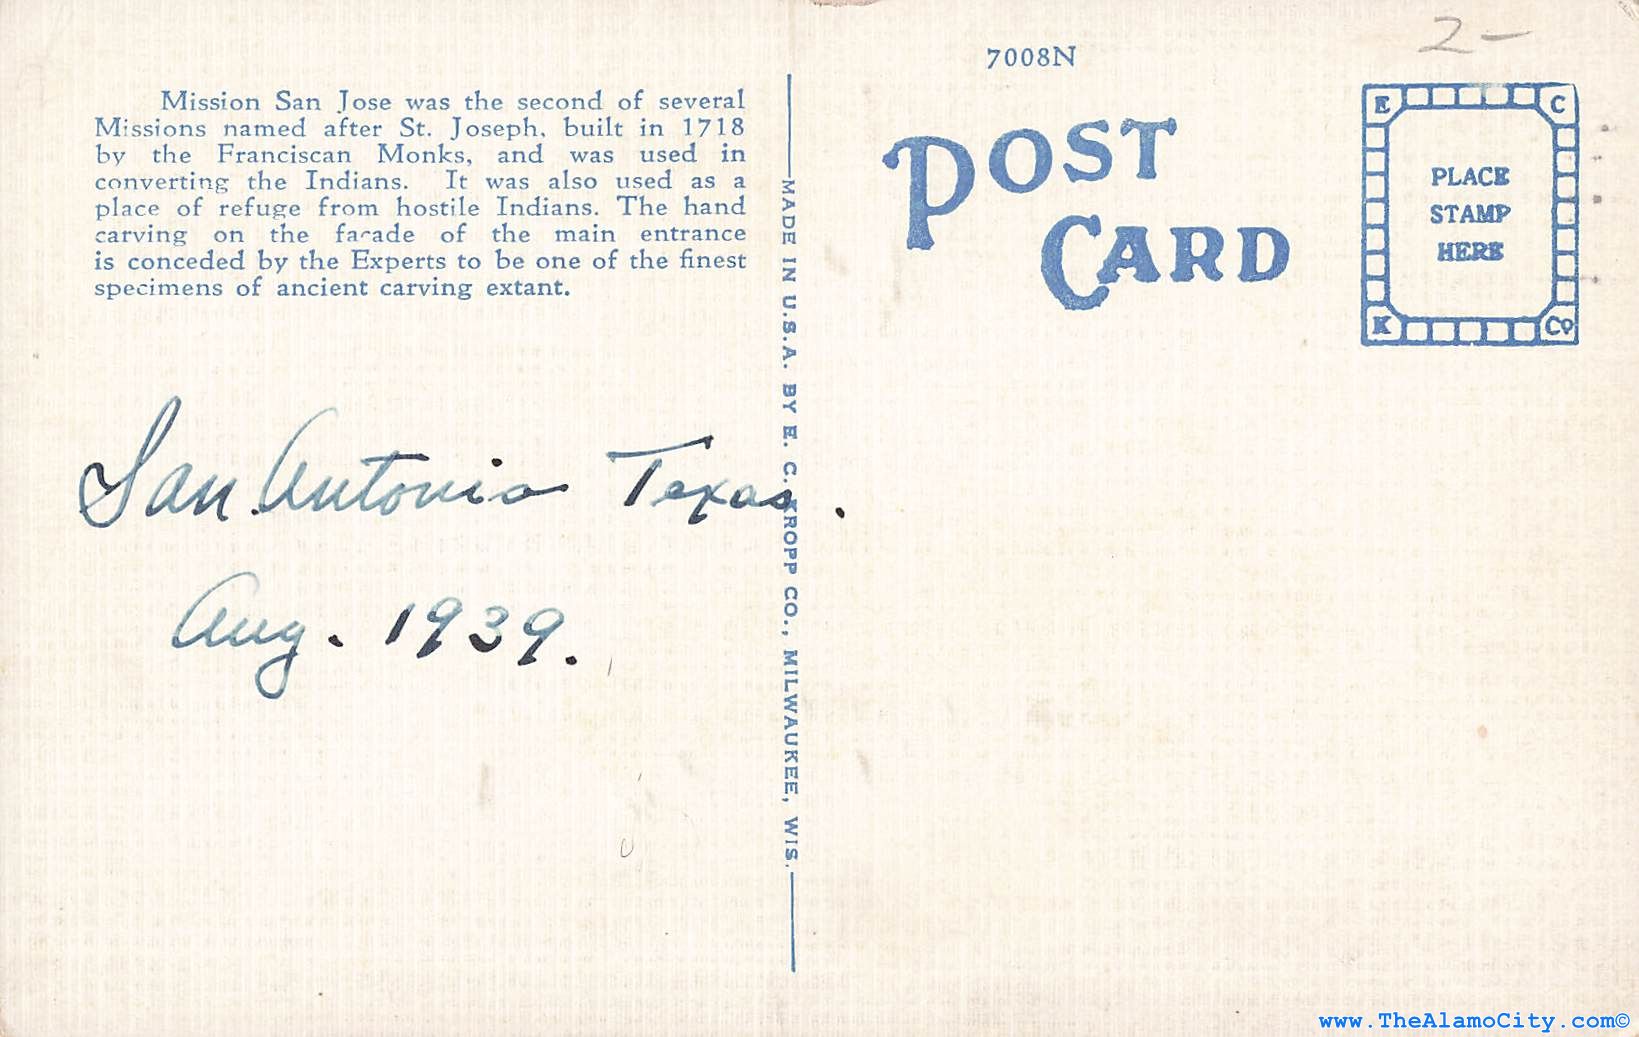 Mission San Jose was the second of several
Missions named after St. Joseph, built in 1718
by the Franciscan Monks, and was used in
converting the Indians. It was also used as a
place of refuge from hostile Indians. The hand
carving on the facade of the main entrance
is conceded by the Experts to be one of the finest
specimens of ancient carving extant.
San Antonio Texas.
Aug. 1939.
MADE IN U.S.A. BY E. C. KROPP CO., MILWAUKEE, WIS.
7008N
POST
CARD
2-
E C
PLACE
STAMP
HERE
K Co
www.TheAlamoCity.com©